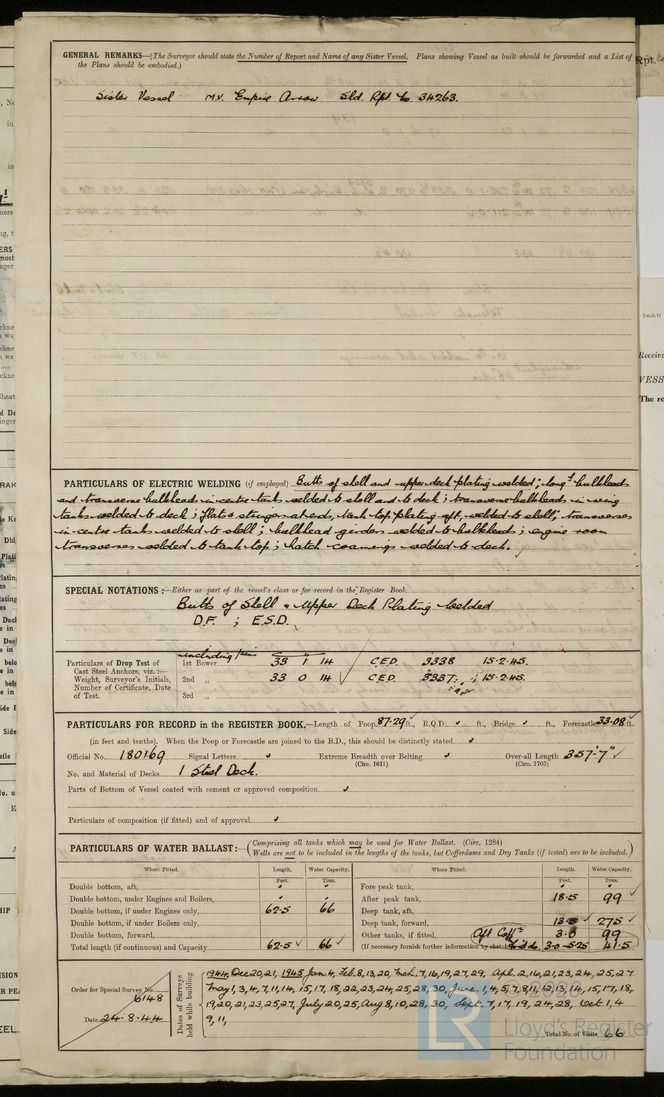 GENERAL REMARKS—(The Surveyor should state the Number of Report and Name of any Sister Vessel. Plans showing Vessel as built should be forwarded and a List of
the Plans should be embodied.)
Sister Vessel M.V. Empire Arrow Sld. Rpt. No. 34263.
PARTICULARS OF ELECTRIC WELDING (if employed) Butts of shell and upper deck plating welded; longl bulkheads
and transverse bulkheads in centre tanks welded to shell and to deck; transverse bulkheads in wing
tanks welded to deck; flats & stringers at ends, tank top plating aft, welded to shell; transverses
in centre tanks welded to shell; bulkhead girders welded to bulkheads; engine room
transverses welded to tank top; hatch coamings welded to deck.
SPECIAL NOTATIONS:—Either as part of the vessel's class or for record in the Register Book.
Butts of Shell & Upper Deck Plating welded
D.F. ; E.S.D.
Particulars of Drop Test of
Cast Steel Anchors, viz.:—
Weight, Surveyor's Initials,
Number of Certificate, Date
of Test.
including pin
1st Bower 33 1 14 C.E.D. 3338 15.2.45.
2nd „ 33 0 14 C.E.D. 3337; 15.2.45.
3rd „
PARTICULARS FOR RECORD in the REGISTER BOOK.—Length of Poop 87.29 ft., R.Q.D. ft., Bridge ft., Forecastle 33.08 ft.
(in feet and tenths). When the Poop or Forecastle are joined to the B.D., this should be distinctly stated
Official No. 180169 Signal Letters Extreme Breadth over Belting Over-all Length 357'-7"
(Circ. 1611) (Circ. 1703)
No. and Material of Decks 1 Steel Deck.
Parts of Bottom of Vessel coated with cement or approved composition
Particulars of composition (if fitted) and of approval
PARTICULARS OF WATER BALLAST:— (Comprising all tanks which may be used for Water Ballast. (Circ. 1284)
Wells are not to be included in the lengths of the tanks, but Cofferdams and Dry Tanks (if tested) are to be included.)
Where Fitted. Length. Water Capacity. Where Fitted. Length. Water Capacity.
Feet. Tons. Feet. Tons.
Double bottom, aft, Fore peak tank,
Double bottom, under Engines and Boilers, After peak tank, 18.5 99
Double bottom, if under Engines only, 62.5 66 Deep tank, aft,
Double bottom, if under Boilers only, Deep tank, forward, 275
Double bottom, forward, Other tanks, if fitted, Aft Coffs 99
Total length (if continuous) and Capacity 62.5 66 If necessary furnish further information by sketch. 41.5
Order for Special Survey No. 6148
Date 24.8.44
Dates of Surveys
held while building
1944, Dec 20,21, 1945 Jan 4, Feb. 8,13,20, Mch. 7,16,19,27,29, Apl. 2,16,21,23,24,25,27
May 1,3,4,7,11,14,15,17,18,22,23,24,25,28,30, June 1,4,5,7,8,11,12,13,14,15,17,18,
19,20,21,23,25,27, July 20,25, Aug 8,10,28,30, Sept. 7,17,19,24,28, Oct 1,4
9,11,
Total No. of Visits 66
© 2020
LR
Lloyd's Register
Foundation
Rpt. 4
Receive
VESS
The re